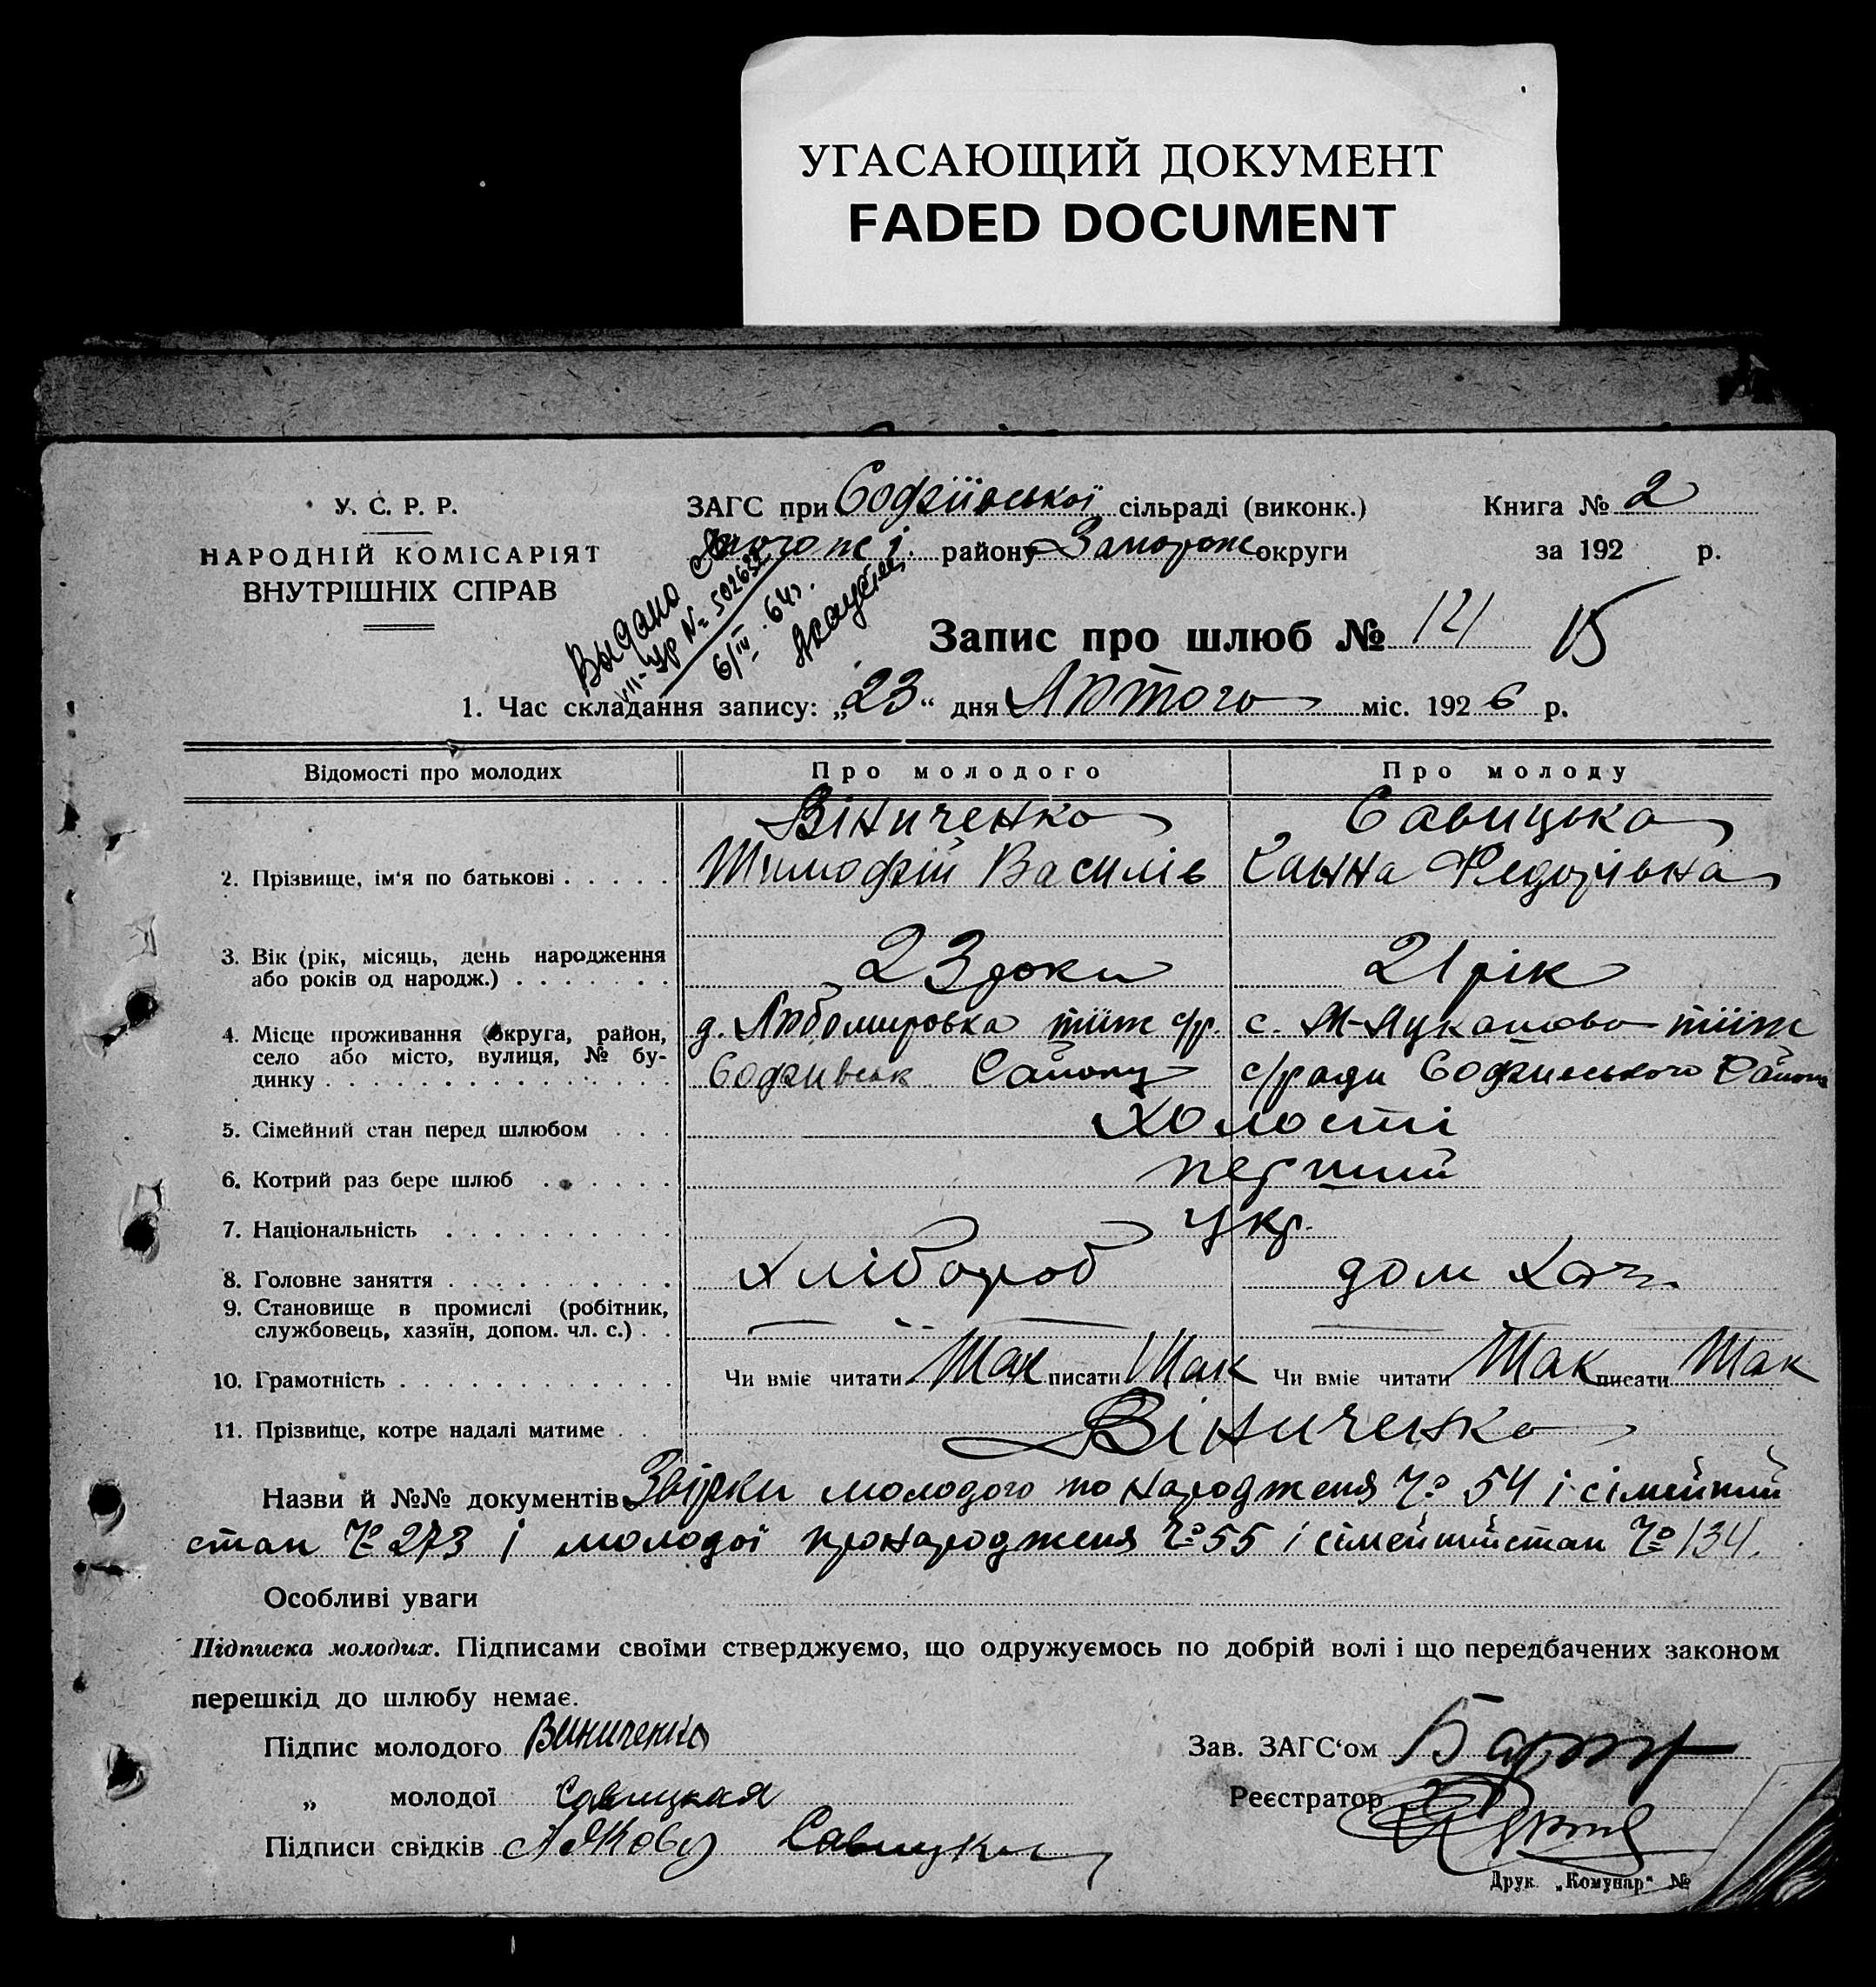 УГАСАЮЩИЙ ДОКУМЕНТ
FADED DOCUMENT
У. С. Р. Р.
НАРОДНІЙ КОМІСАРІЯТ
ВНУТРІШНІХ СПРАВ
ЗАГС при Софіївської сільраді (виконк.)
району Запорож округи
Книга № 2
за 192 р.
Выдано
№ 502635
6/III - 64г.
Запис про шлюб № 121
15
1. Час складання запису: „23“ дня Лютого міс. 1926 р.
Відомості про молодих Про молодого Про молоду
Вініченко Савицька
2. Прізвище, ім'я по батькові . . . . . Тимофій Василів Ганна Федорівна
3. Вік (рік, місяць, день народження
або років од народж.) . . . . . . . 23 роки 21 рік
4. Місце проживання (округа, район, д. Любомировка тіїж с/р. с. М-Лукашово тіїж
село або місто, вулиця, № бу-
динку . . . . . . . . . . . . . . . Софиивськ Району с/ради Софиивського Району
5. Сімейний стан перед шлюбом . . . Холості
6. Котрий раз бере шлюб . . . . . . перший
7. Національність . . . . . . . . . . укр.
8. Головне заняття . . . . . . . . . . Хлібороб дом хаз.
9. Становище в промислі (робітник,
службовець, хазяїн, допом. чл. с.) . . — —
10. Грамотність . . . . . . . . . . . . Чи вміє читати Так писати Так Чи вміє читати Так писати Так
11. Прізвище, котре надалі матиме . . Вініченко
Назви й №№ документів Звірки молодого по народженя № 54 і сімейний
стан № 273 і молодої про народженя № 55 і сімейний стан № 134.
Особливі уваги
Підписка молодих. Підписами своїми стверджуємо, що одружуємось по добрій волі і що передбачених законом
перешкід до шлюбу немає.
Підпис молодого Виниченко
Зав. ЗАГС'ом
„ молодої Савицкая
Реєстратор
Підписи свідків Савицки
Друк. „Комунар“ №